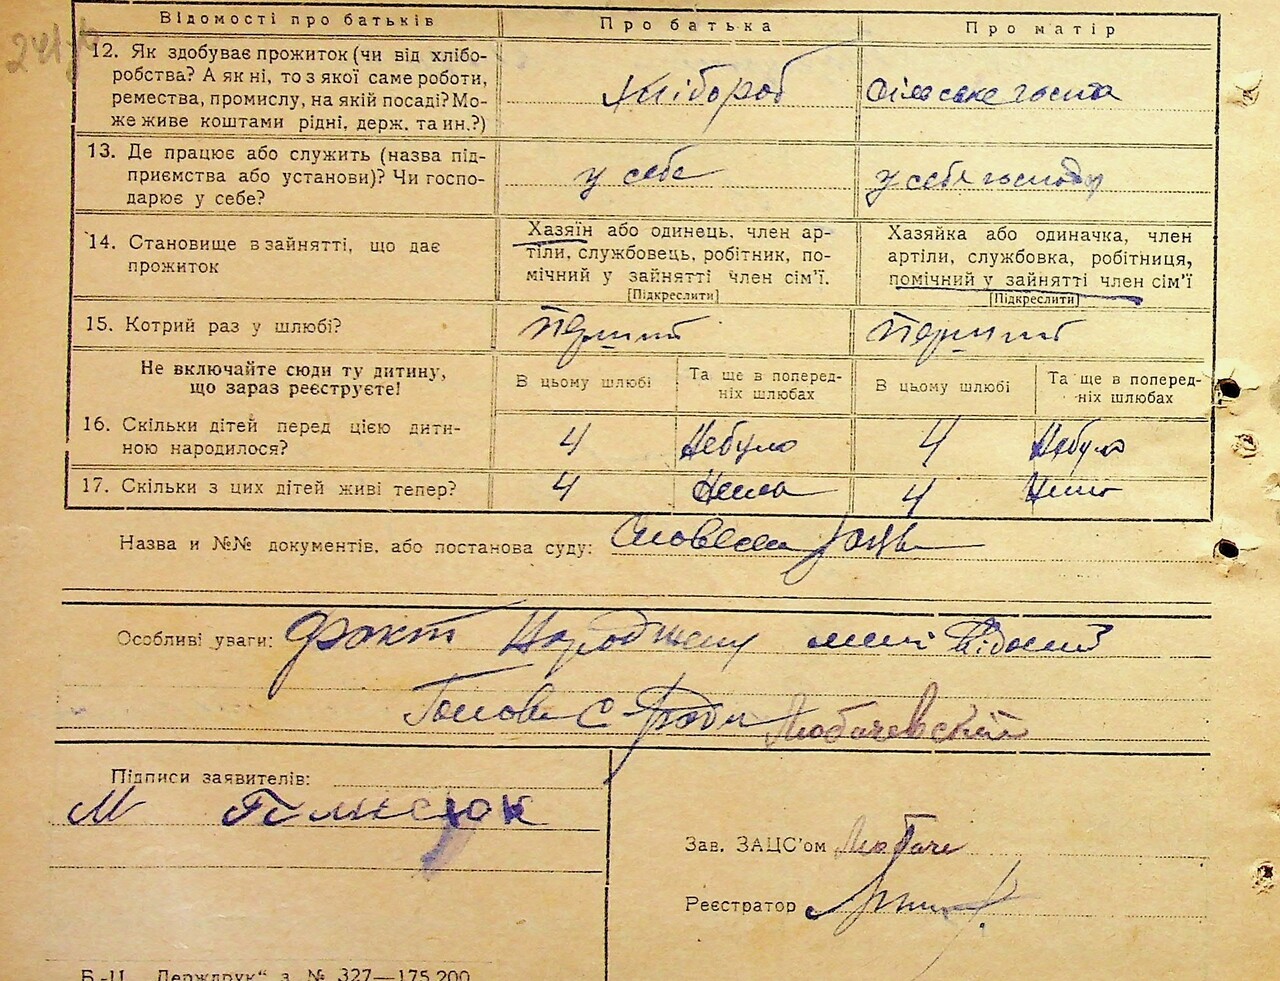 Відомості про батьків Про батька Про матір
12. Як здобуває прожиток (чи від хлібо-
робства? А як ні, то з якої саме роботи,
ремества, промислу, на якій посаді? Мо-
же живе коштами рідні, держ. та ин.?)
Хлібороб
13. Де працює або служить (назва під-
приємства або установи)? Чи госпо-
дарює у себе?
у себе
у себя
14. Становище в зайнятті, що дає
прожиток
Хазяїн або одинець, член ар-
тіли, службовець, робітник, по-
мічний у зайнятті член сім'ї.
[Підкреслити]
Хазяйка або одиначка, член
артіли, службовка, робітниця,
помічний у зайнятті член сім'ї
[Підкреслити]
15. Котрий раз у шлюбі?
Не включайте сюди ту дитину,
що зараз реєструєте!
В цьому шлюбі
Та ще в поперед-
ніх шлюбах
В цьому шлюбі
Та ще в поперед-
ніх шлюбах
16. Скільки дітей перед цією дити-
ною народилося?
4 Небуло 4 Небуло
17. Скільки з цих дітей живі тепер? 4 4
Назва и №№ документів, або постанова суду:
Особливі уваги: Факт мені відомий
Голова С Ради Любачевский
Підписи заявителів:
М
Зав. ЗАЦС'ом Любаче
Реєстратор
Б.-Ц. „Держдрук“ з. № 327—175.200